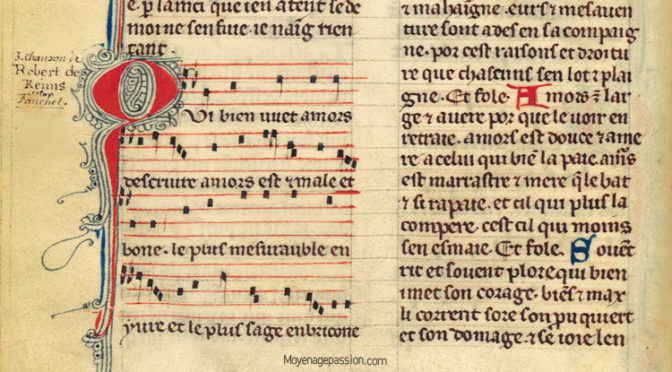 e. p lamci que ien atent se de
moi ne sen fuie. ie naig rien
tant.
3. chanson de
Robert de
Reims
Qui bien vuet amors
descrivre amors est ⁊ male et
bone. le plus mesurauble en
yvre et le plus sage enbricone
⁊ mahaigne. eurs ⁊ mesaven
ture sont ades en sa compaig
ne. por cest raisons et droitu
re que chascuns sen lot ⁊ plai
gne. Et fole. Amors ⁊ lar
ge ⁊ avere por que le voir en
retraie. amors est douce ⁊ ame
re a celui qui biē la paie. am̄s
est marrastre ⁊ mere q̄ le bat
⁊ si rapaie. et cil qui plus la
compere. cest cil qui moins
sen esmaie. Et fole. Souēt
rit et souent plore qui bien
imet son corage. biēs ⁊ max
li corrent sore son pu quiert
et son domage. ⁊ se ioie len
Moyenagepassion.com